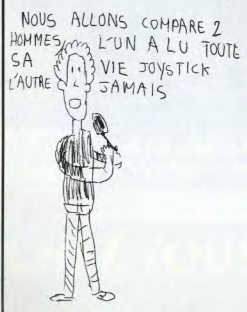 NOUS ALLONS COMPARE 2
HOMMES L'UN A LU TOUTE
SA VIE JOYSTICK
L'AUTRE JAMAIS